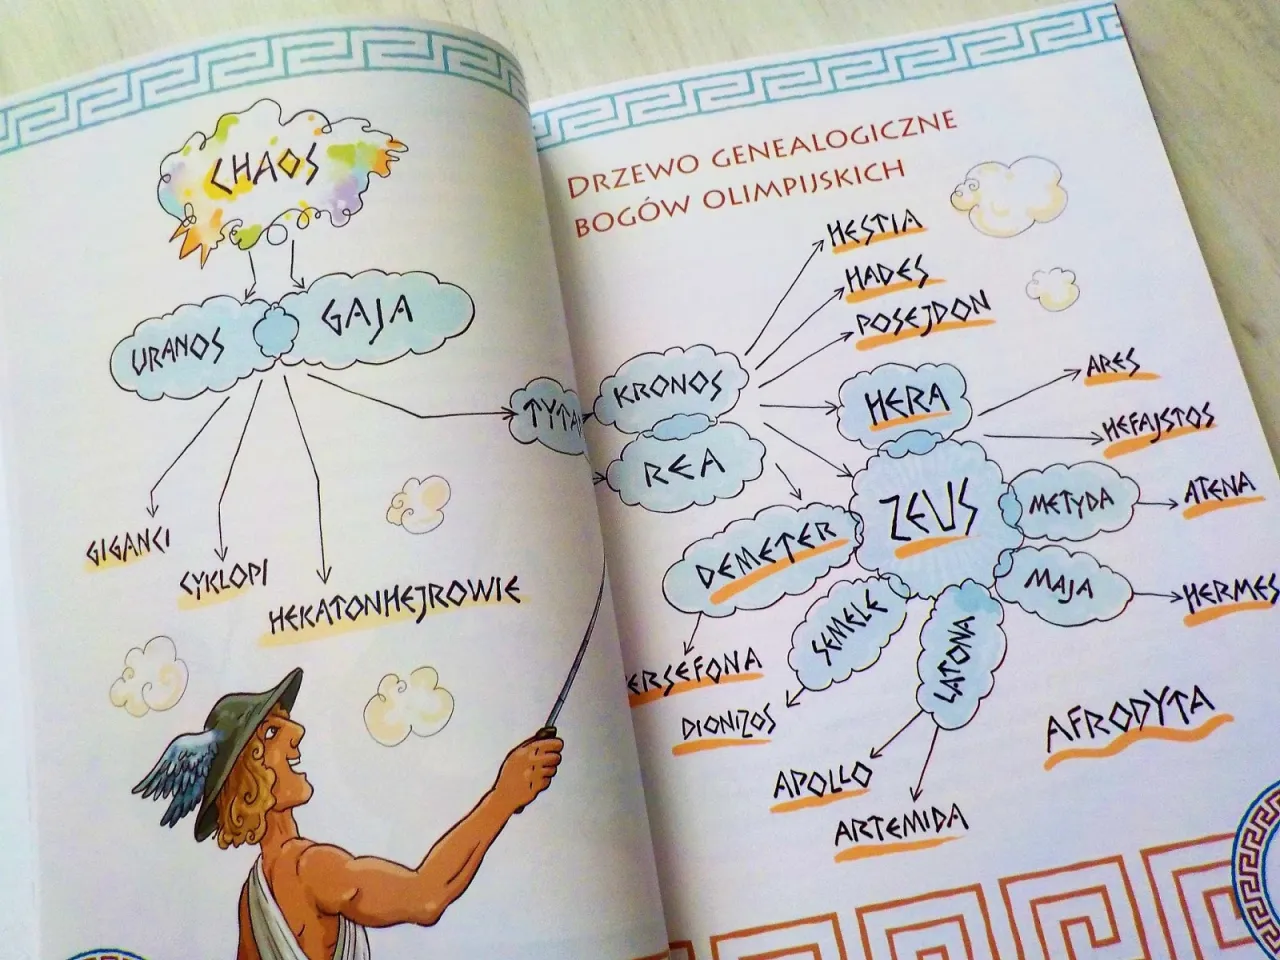 CHAOS
URANOS
GAJA
GIGANCI
CYKLOPI
HEKATONHEJROWIE
DRZEWO GENEALOGICZNE
BOGÓW OLIMPIJSKICH
HESTIA
HADES
POSEJDON
KRONOS
REA
HERA
ZEUS
DEMETER
ARES
HEFAJSTOS
METYDA
ATENA
MAJA
HERMES
SEMELE
LATONA
ERSEFONA
DIONIZOS
APOLLO
ARTEMIDA
AFRODYTA